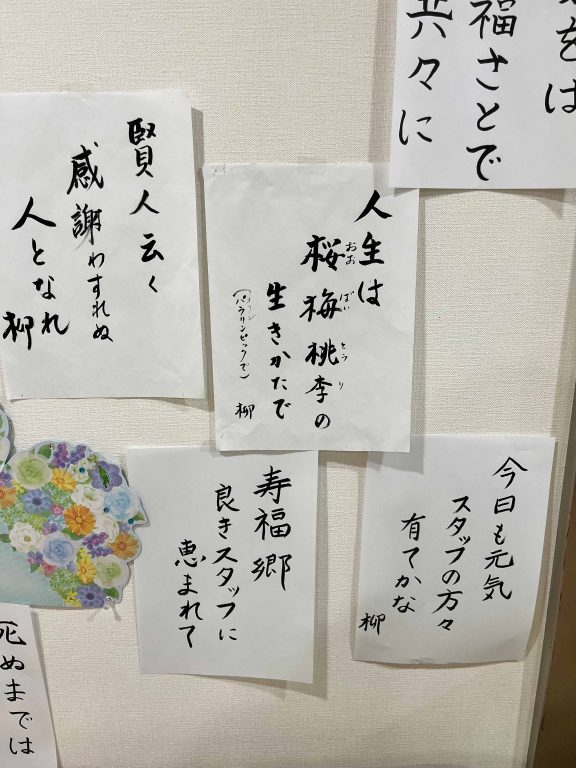 をは
福さとで
共々に
賢人云く
感謝わすれぬ
人となれ
柳
人生は
桜梅桃李の
おお ばい とう り
生きかたで
(パラリンピックで)
柳
今日も元気
スタッフの方々
有てかな
柳
寿福郷
良きスタッフに
恵まれて
死ぬまでは